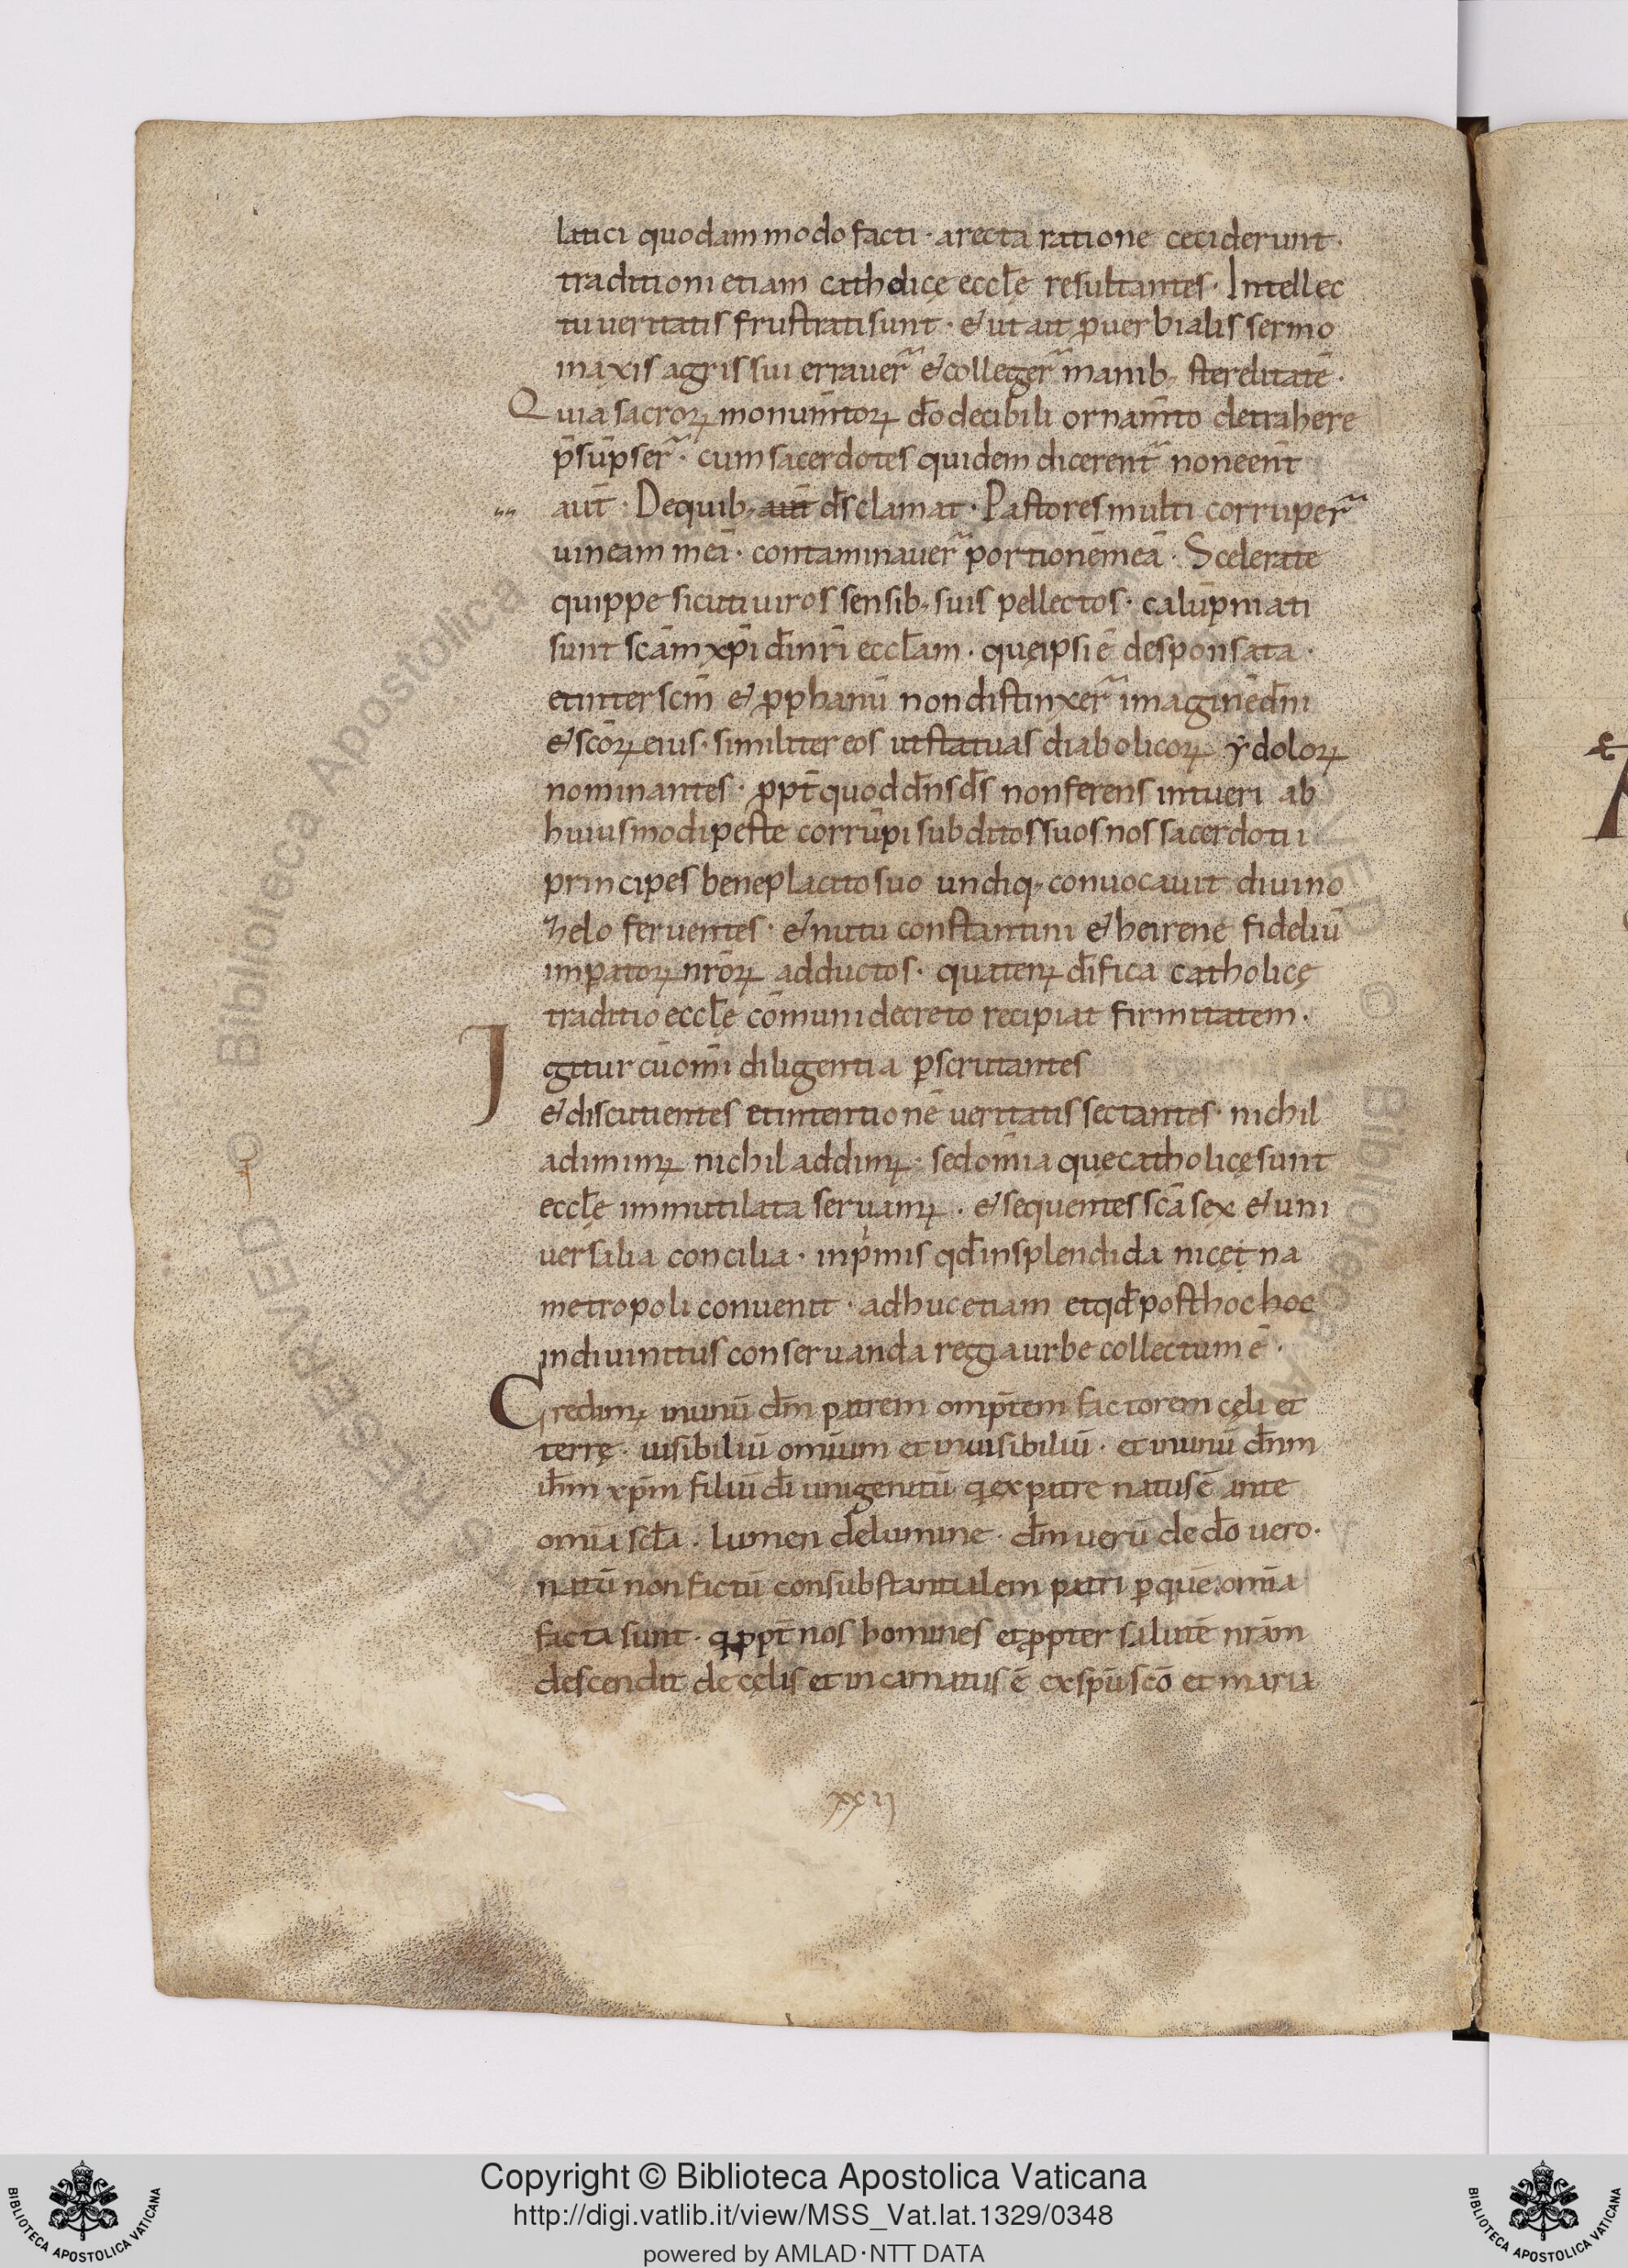 latici quodam modo facti · a recta ratione ceciderunt ·
traditioni etiam catholicę eccl̄ę resultantes · Intellec
tu ueritatis frustrati sunt · & ut ait ꝓuerbialis sermo
in axis agris sui errauer̄ & colleger̄ manib; sterelitatē ·
Quia sacroꝝ monum̄toꝝ do̅ decibili ornam̄to detrahere
p̄sūpser̄ · cum sacerdotes quidem dicerent̄ non eēnt
aut̄ · De quib; aut̄ ds̄ clamat · Pastores multi corruper̄
uineam meā · contaminauer̄ portionē meā · Scelerate
quippe sicuti uiros sensib; suis pellectos · calūpniati
sunt scām xp̄i dn̄i nr̄i eccl̄am · quę ipsi ē desponsata ·
et inter scm̄ & ꝓphanū non distinxer̄ imaginē dn̄i
& scōꝝ eius · similiter eos ut statuas diabolicoꝝ ydoloꝝ
nominantes · ꝓpt̄ quod dn̄s ds̄ non ferens intueri ab
huiusmodi peste corrūpi subditos suos nos sacerdotii
principes beneplacito suo undiq; conuocauit diuino
zelo feruentes · & nutu constantini & heirene fideliū
imꝑatoꝝ nr̄oꝝ adductos · quatenꝰ di̅fica catholicę
traditio eccl̄ę cōmuni decreto recipiat firmitatem ·
Igitur cū om̄i diligentia ꝑscrutantes
& discutientes et intentionē ueritatis sectantes · nichil
adimimꝰ nichil addimꝰ · sed om̄ia quę catholicę sunt
eccl̄ę immutilata seruamꝰ · & sequentes scā sex & uni
uersalia concilia · inprimis qd̄ in splendida nicęina
metropoli conuenit · adhuc etiam et qd̄ post hoc hoc
in diuinitus conseruanda regia urbe collectum ē ·
Credimꝰ in unū dm̄ patrem omp̄tem factorem cęli et
terrę · uisibiliū omium et inuisibiliū · et in unū dn̄m
ih̄m xp̄m filiū di̅ unigenitū q ex patre natus ē ante
om̄ia scl̄a · lumen de lumine · dm̄ uerū de do̅ uero ·
natū non factū consubstantialem patri ꝑ quē om̄ia
facta sunt · q ꝓpt̄ nos homines et ꝓpter salutē nr̄am
descendit de cęlis et incarnatus ē ex spū scō et maria
xxii
Copyright © Biblioteca Apostolica Vaticana
http://digi.vatlib.it/view/MSS_Vat.lat.1329/0348
powered by AMLAD·NTT DATA
BIBLIOTECA APOSTOLICA VATICANA
BIBLIOTECA APOSTOLICA VATICANA